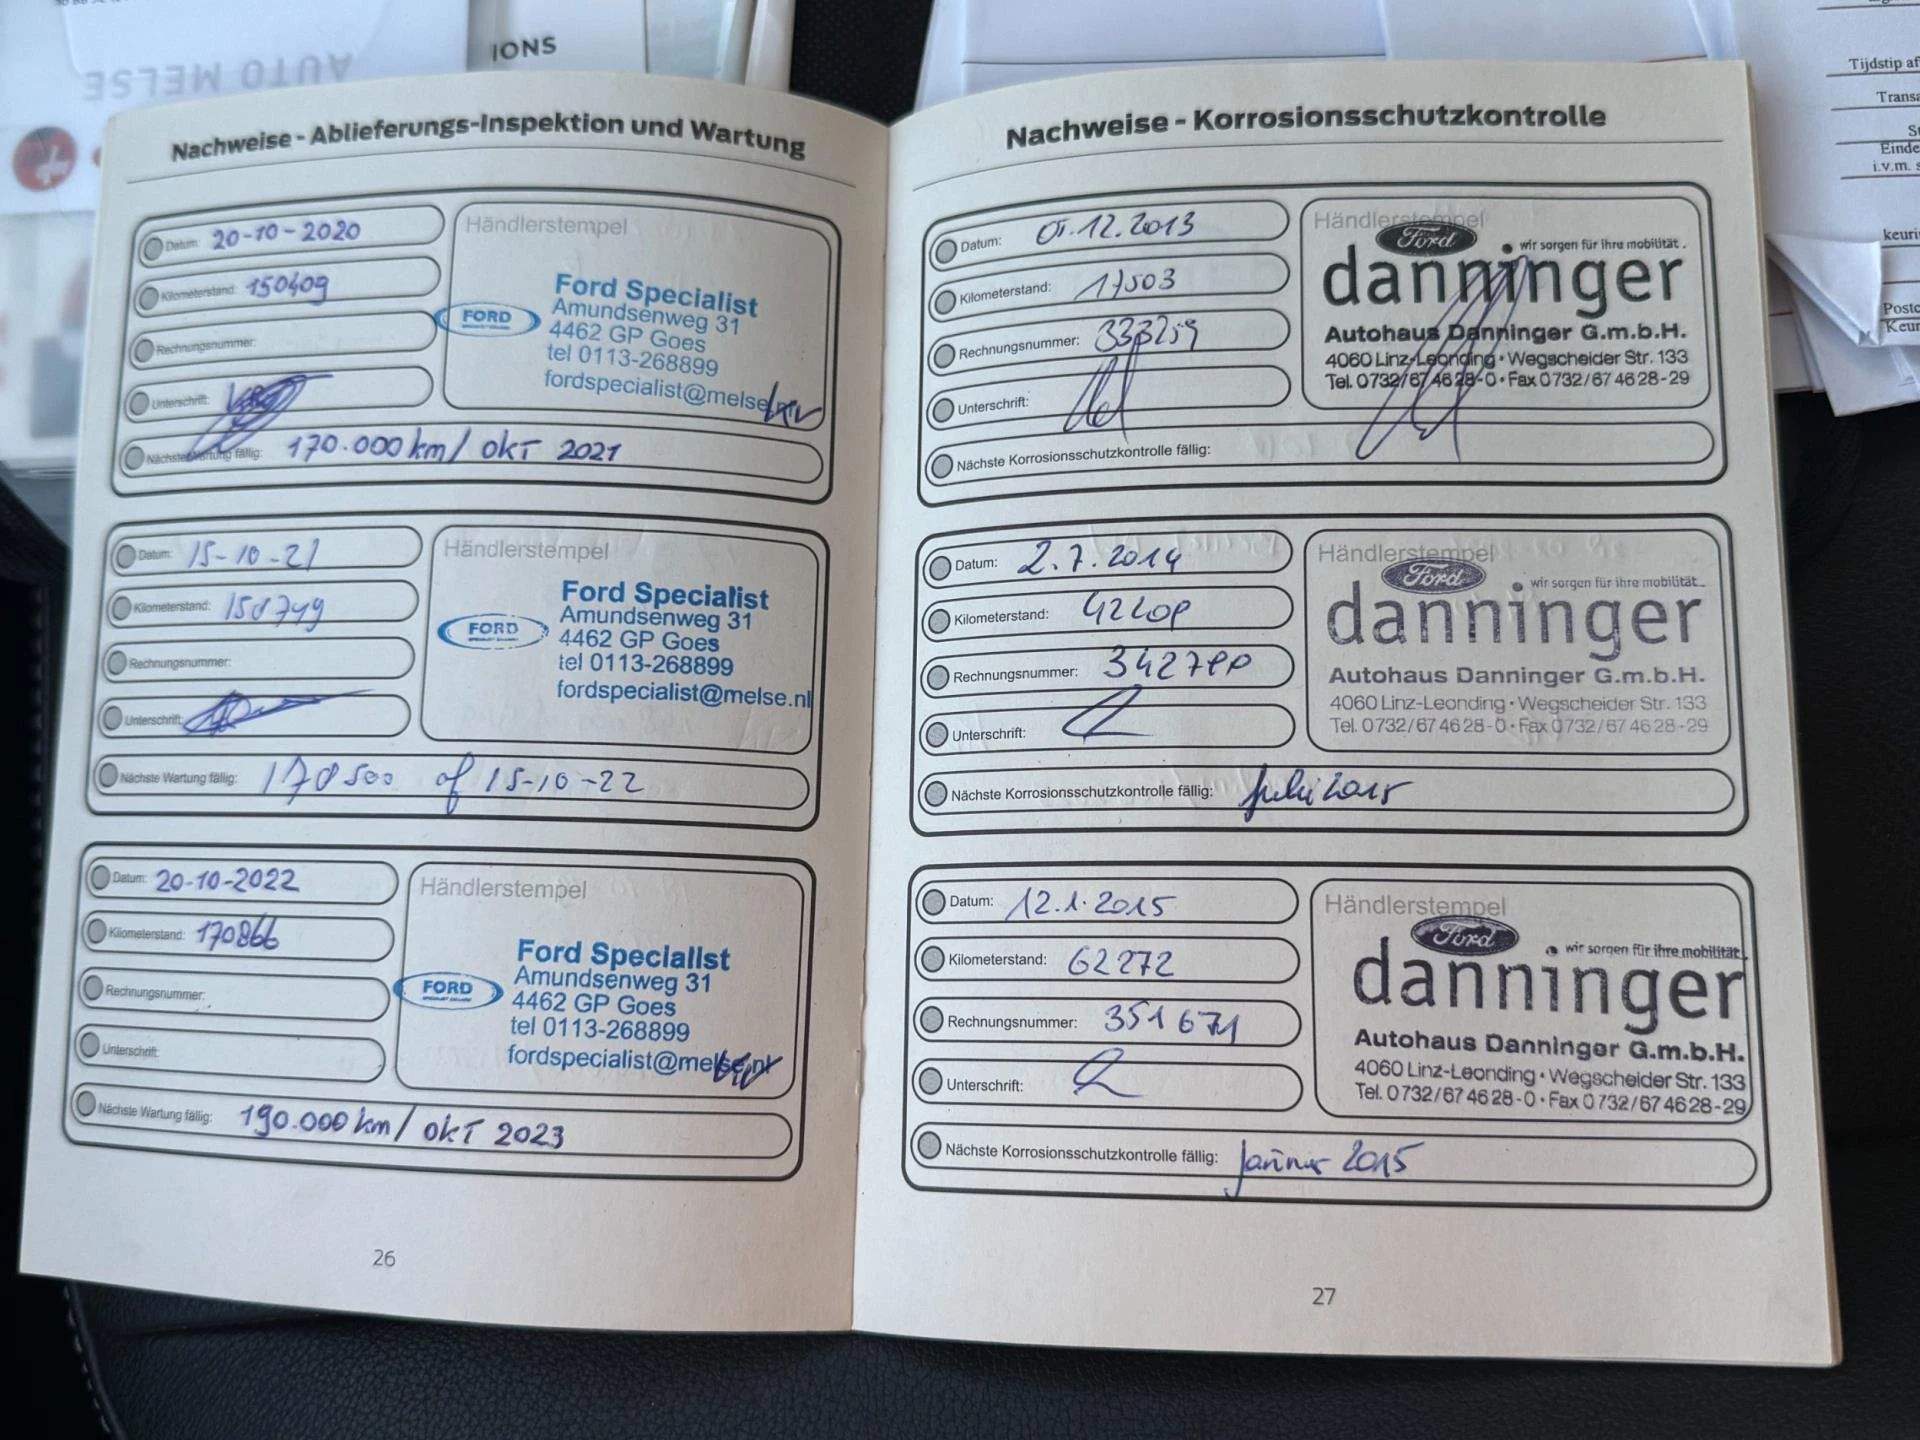 AUTO MELSE
IONS
Nachweise - Ablieferungs-Inspektion und Wartung
Datum: 20-10-2020
Kilometerstand: 150409
Rechnungsnummer:
Unterschrift:
Nächste Wartung fällig: 170.000 km / OKT 2021
Händlerstempel
FORD
Ford Specialist
Amundsenweg 31
4462 GP Goes
tel 0113-268899
fordspecialist@melse
Datum: 15-10-21
Kilometerstand: 158749
Rechnungsnummer:
Unterschrift:
Nächste Wartung fällig: 178500 of 15-10-22
Händlerstempel
FORD
Ford Specialist
Amundsenweg 31
4462 GP Goes
tel 0113-268899
fordspecialist@melse.nl
Datum: 20-10-2022
Kilometerstand: 170866
Rechnungsnummer:
Unterschrift:
Nächste Wartung fällig: 190.000 km / OKT 2023
Händlerstempel
FORD
Ford Specialist
Amundsenweg 31
4462 GP Goes
tel 0113-268899
fordspecialist@melse.nl
26
Nachweise - Korrosionsschutzkontrolle
Datum: 01.12.2013
Kilometerstand: 17503
Rechnungsnummer: 333259
Unterschrift:
Nächste Korrosionsschutzkontrolle fällig:
Händlerstempel
Ford
wir sorgen für ihre mobilität.
danninger
Autohaus Danninger G.m.b.H.
4060 Linz-Leonding • Wegscheider Str. 133
Tel. 0732/674628-0 • Fax 0732/674628-29
Datum: 2.7.2014
Kilometerstand:
Rechnungsnummer:
Unterschrift:
Nächste Korrosionsschutzkontrolle fällig: Juli 2015
Händlerstempel
Ford
wir sorgen für ihre mobilität.
danninger
Autohaus Danninger G.m.b.H.
4060 Linz-Leonding • Wegscheider Str. 133
Tel. 0732/674628-0 • Fax 0732/674628-29
Datum: 12.1.2015
Kilometerstand: 62272
Rechnungsnummer: 351671
Unterschrift:
Nächste Korrosionsschutzkontrolle fällig: Jänner 2015
Händlerstempel
Ford
wir sorgen für ihre mobilität.
danninger
Autohaus Danninger G.m.b.H.
4060 Linz-Leonding • Wegscheider Str. 133
Tel. 0732/674628-0 • Fax 0732/674628-29
27
Tijdstip af
Transa
Einde
i.v.m. s
keuri
Postc
Keur